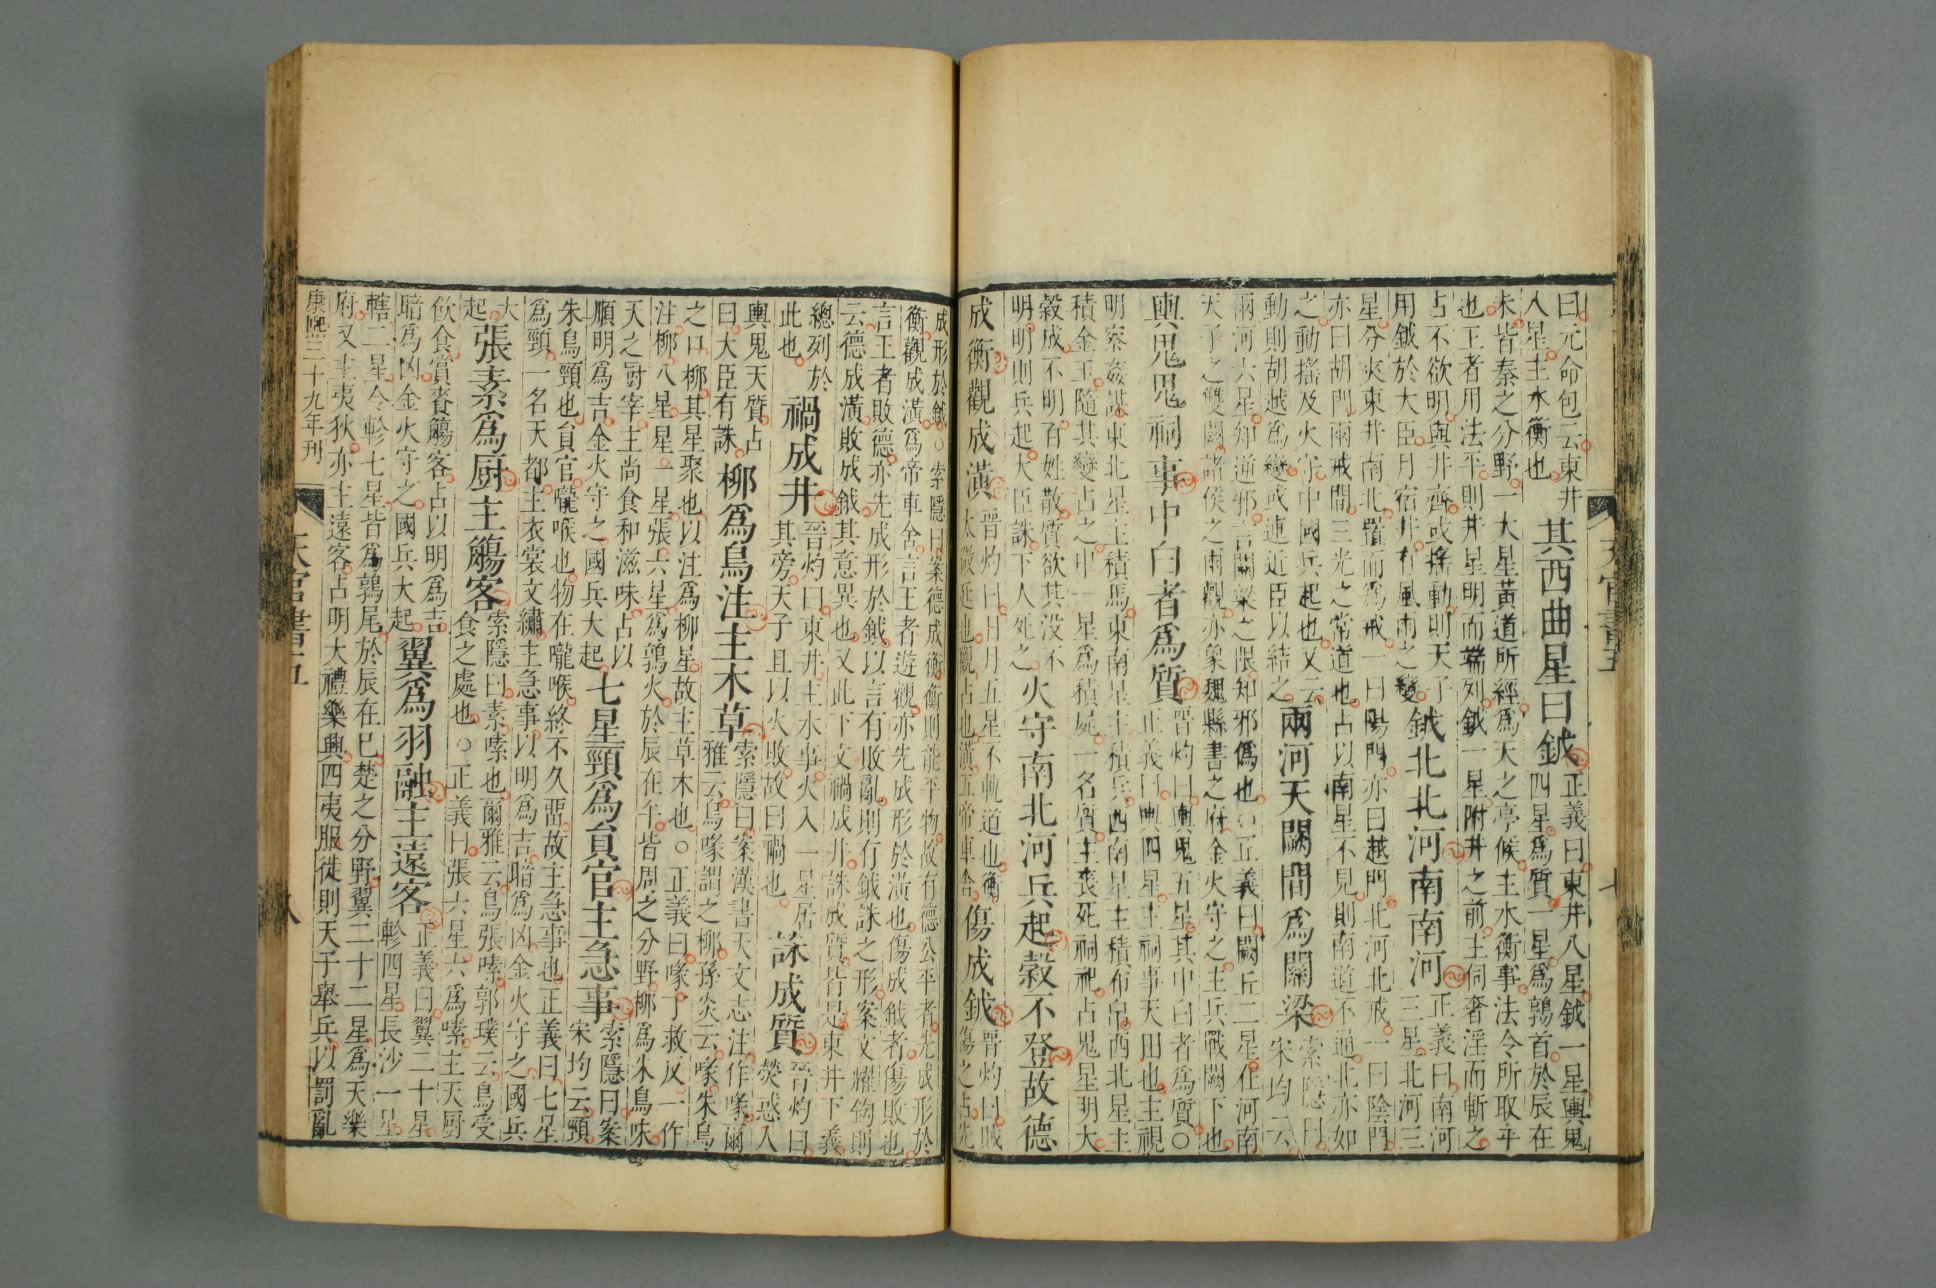 曰元命包云東井
人星主水衡也
其西曲星曰鉞
正義曰東井八星鉞一星輿鬼
四星爲質一星爲鶉首於辰在
未皆秦之分野一大星黃道所經爲天之亭候主水衡事法令所取平
也王者用法平則井星明而端列鉞一星附井之前主伺奢淫而斬之
占不欲明與井齊或搖動則天子
用鉞於大臣月宿井有風雨之變
鉞北北河南南河
正義曰南河
三星北河三
星分夾東井南北置而爲戒一曰陽門亦曰越門北河北戒一曰陰門
亦曰胡門兩戒間三光之常道也占以南星不見則南道不通北亦如
之動搖及火守中國兵起也又云
動則胡越爲變或連近臣以結之
兩河天闕間爲關梁
索隱曰
宋均云
兩河六星知逆邪言關梁之限知邪僞也○正義曰闕丘二星在河南
天子之雙闕諸侯之兩觀亦象魏縣書之府金火守之主兵戰闕下也
輿鬼鬼祠事中白者爲質
晉灼曰輿鬼五星其中白者爲質○
正義曰輿四星主祠事天田也主視
明察姦謀東北星主積馬東南星主積兵西南星主積布帛西北星主
積金玉隨其變占之中一星爲積屍一名質主喪死祠祀占鬼星明大
穀成不明百姓散質欲其沒不
明明則兵起大臣誅下人死之
火守南北河兵起穀不登故德
成衡觀成潢
晉灼曰日月五星不軌道也衡
太微廷也觀占也潢五帝車舍
傷成鉞
晉灼曰賊
傷之占先
天官書五
七
成形於鉞○索隱曰案德成衡衡則能平物故有德公平者先成形於
衡觀成潢爲帝車舍言王者遊觀亦先成形於潢也傷成鉞者傷敗也
言王者敗德亦先成形於鉞以言有敗亂則有鉞誅之形案文耀鉤則
云德成潢敗成鉞其意異也又此下文禍成井誅成質皆是東井下義
總列於
此也
禍成井
晉灼曰東井主水事火入一星居
其旁天子且以火敗故曰禍也
誅成質
晉灼曰
熒惑入
輿鬼天質占
曰大臣有誅
柳爲鳥注主木草
索隱曰案漢書天文志注作喙爾
雅云鳥喙謂之柳孫炎云喙朱鳥
之口柳其星聚也以注爲柳星故主草木也○正義曰喙丁救反一作
注柳八星星一星張六星爲鶉火於辰在午皆周之分野柳爲朱鳥咮
天之厨宰主尚食和滋味占以
順明爲吉金火守之國兵大起
七星頸爲員官主急事
索隱曰案
宋均云頸
朱鳥頸也員官嚨喉也物在嚨喉終不久畱故主急事也正義曰七星
爲頸一名天都主衣裳文繡主急事以明爲吉暗爲凶金火守之國兵
大
起
張素爲厨主觴客
索隱曰素嗉也爾雅云鳥張嗉郭璞云鳥受
食之處也○正義曰張六星六爲嗉主天厨
飲食賞賚觴客占以明爲吉
暗爲凶金火守之國兵大起
翼爲羽翮主遠客
正義曰翼二十星
軫四星長沙一星
轄二星合軫七星皆爲鶉尾於辰在巳楚之分野翼二十二星爲天樂
府又主夷狄亦主遠客占明大禮樂興四夷服徙則天子舉兵以罰亂
康熙三十九年刊
天官書五
八